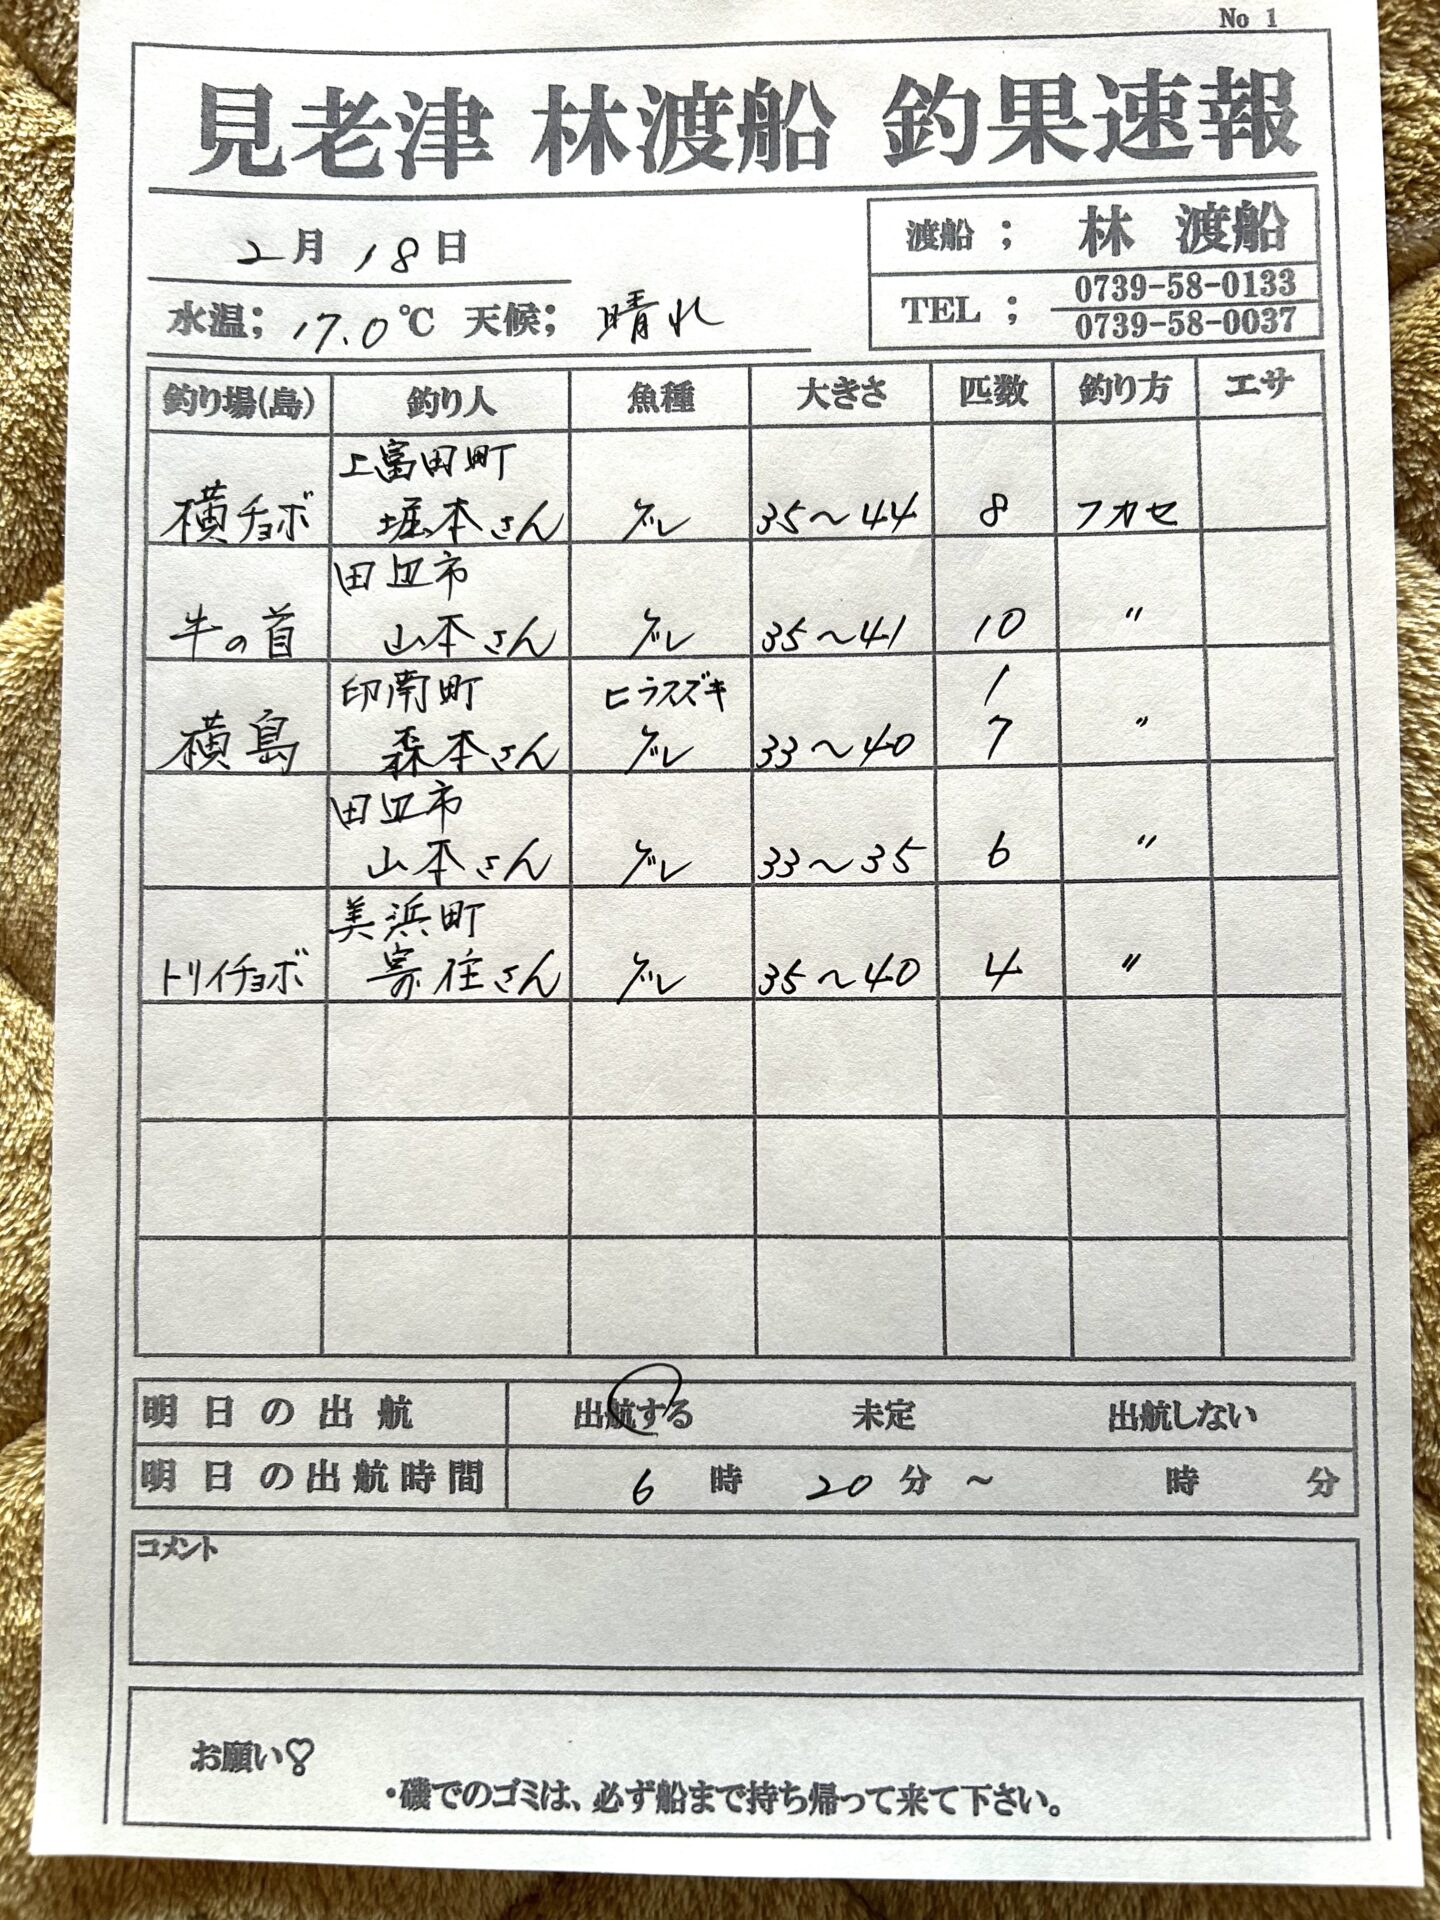 No 1
見老津 林渡船 釣果速報
2月18日
渡船 ; 林 渡船
水温; 17.0℃ 天候; 晴れ
TEL ; 0739-58-0133
0739-58-0037
釣り場(島) 釣り人 魚種 大きさ 匹数 釣り方 エサ
上富田町
横チョボ 堀本さん グレ 35〜44 8 フカセ
田辺市
牛の首 山本さん グレ 35〜41 10 〃
印南町 ヒラスズキ 1
横島 森本さん グレ 33〜40 7 〃
田辺市
山本さん グレ 33〜35 6 〃
美浜町
トリイチョボ 寄住さん グレ 35〜40 4 〃
明日の出航 出航する 未定 出航しない
明日の出航時間 6時20分〜 時 分
コメント
お願い♡
・磯でのゴミは、必ず船まで持ち帰って来て下さい。